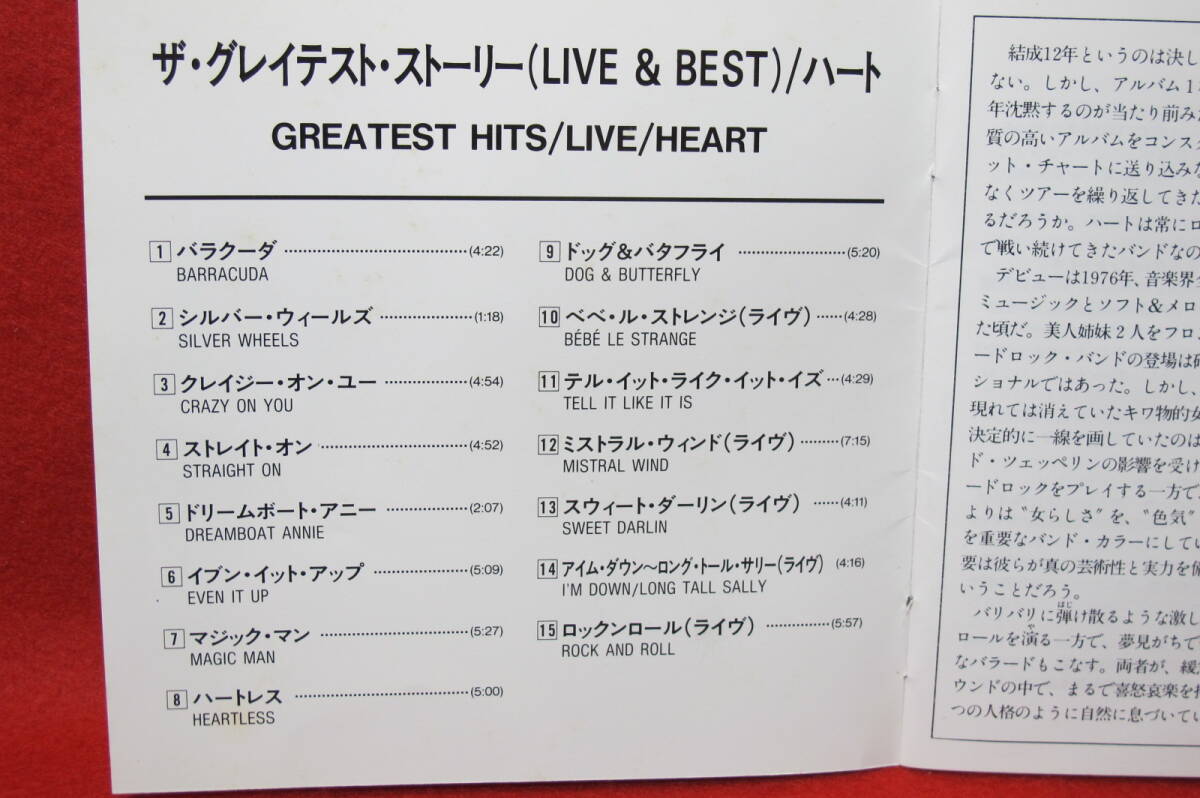 ザ・グレイテスト・ストーリー(LIVE & BEST)/ハート
GREATEST HITS/LIVE/HEART
1 バラクーダ (4:22)
BARRACUDA
2 シルバー・ウィールズ (1:18)
SILVER WHEELS
3 クレイジー・オン・ユー (4:54)
CRAZY ON YOU
4 ストレイト・オン (4:52)
STRAIGHT ON
5 ドリームボート・アニー (2:07)
DREAMBOAT ANNIE
6 イブン・イット・アップ (5:09)
EVEN IT UP
7 マジック・マン (5:27)
MAGIC MAN
8 ハートレス (5:00)
HEARTLESS
9 ドッグ&バタフライ (5:20)
DOG & BUTTERFLY
10 ベベ・ル・ストレンジ(ライヴ) (4:28)
BÉBÉ LE STRANGE
11 テル・イット・ライク・イット・イズ (4:29)
TELL IT LIKE IT IS
12 ミストラル・ウィンド(ライヴ) (7:15)
MISTRAL WIND
13 スウィート・ダーリン(ライヴ) (4:11)
SWEET DARLIN
14 アイム・ダウン〜ロング・トール・サリー(ライヴ) (4:16)
I'M DOWN/LONG TALL SALLY
15 ロックンロール(ライヴ) (5:57)
ROCK AND ROLL
結成12年というのは決し
ない。しかし、アルバム1
年沈黙するのが当たり前み
質の高いアルバムをコンス
ット・チャートに送り込みな
なくツアーを繰り返してきた
るだろうか。ハートは常にロ
で戦い続けてきたバンドなの
デビューは1976年、音楽界全
ミュージックとソフト&メロ
た頃だ。美人姉妹2人をフロ
ードロック・バンドの登場は確
ショナルではあった。しかし、
現れては消えていたキワ物的女
決定的に一線を画していたのは
ド・ツェッペリンの影響を受け
ードロックをプレイする一方で
よりは〝女らしさ〟を、〝色気〟
を重要なバンド・カラーにしてい
要は彼らが真の芸術性と実力を備
いうことだろう。
バリバリに弾け散るような激し
ロールを演る一方で、夢見がちで
なバラードもこなす。両者が、緩
ウンドの中で、まるで喜怒哀楽を持
つの人格のように自然に息づいてい